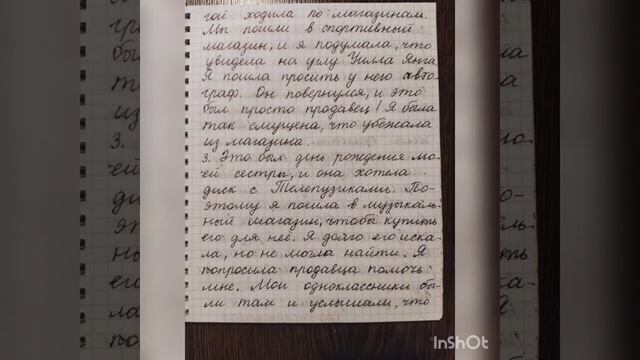 гой ходила по магазинам.
Мы пошли в спортивный
магазин, и я подумала, что
увидела на углу Уилла Янга.
Я пошла просить у него авто-
граф. Он повернулся, и это
был просто продавец! Я была
так смущена, что убежала
из магазина.
3. Это был день рождения мо-
ей сестры, и она хотела
диск с Телепузиками. По-
этому я пошла в музыкаль-
ный магазин, чтобы купить
его для неё. Я долго его иска-
ла, но не могла найти. Я
попросила продавца помочь
мне. Мои одноклассники бы-
ли там и услышали, что
InShOt